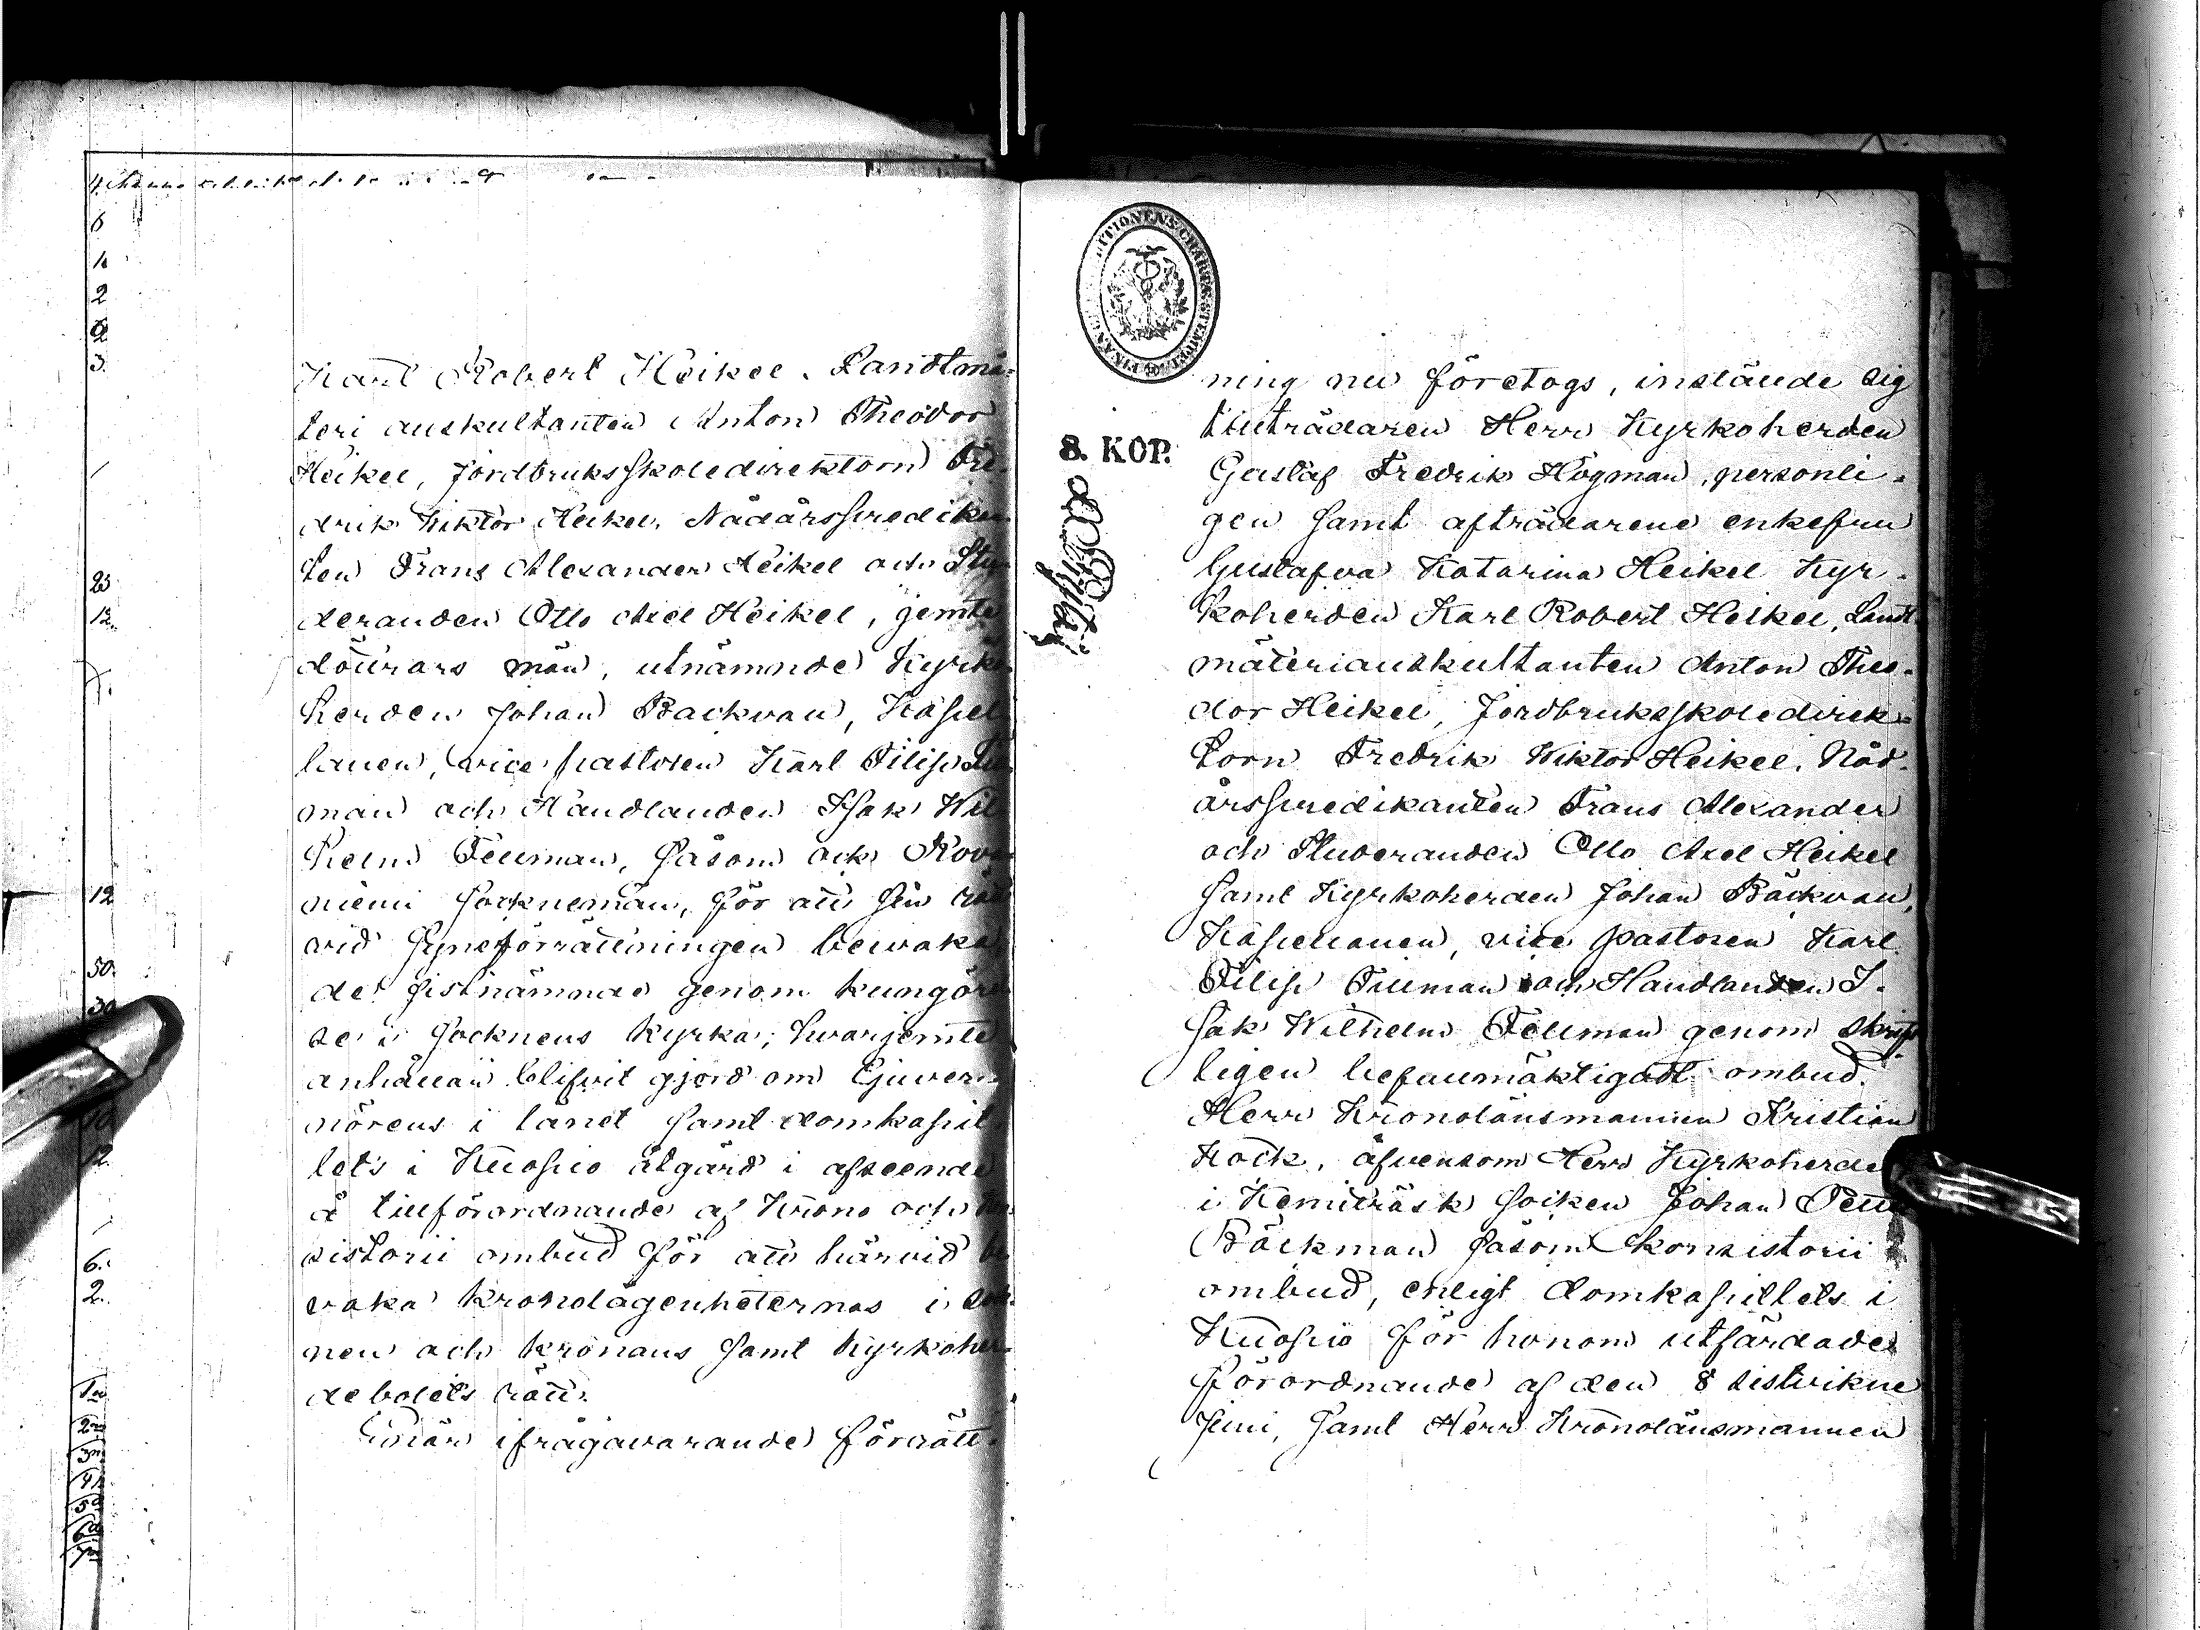 Karl Robert Heikel, Landtmä-
teri auskultanten Anton Theodor
Heikel, Jordbruksskoledirektorn Fre-
drik Wiktor Heikel, Nådårspredikan
ten Frans Alexander Heikel och Stu
deranden Otto Axel Heikel, jemte
utnämnde Kyrko
herden Johan Backvan, Kapel
lanen, vice pastoren Karl Filip
man och Handlanden Isak Wil
helm Fellman, såsom ock Rova
niemi socknemän, för att sin rätt
vid syneförrättningen bevaka
de sistnämnde genom kungörel
se i socknens kyrka; hvarjemte
anhållan blifvit gjord om Guver-
nörens i länet samt domkapit
lets i Kuopio åtgärd i afseende
å tillförordnande af Krono och
sistorii ombud för att härvid be
vaka kronolägenheternas i sock
nen och kronans samt kyrkoher-
debolets rätt.
Enär ifrågavarande förrätt-
CHARTÆ SIGILLATÆ
8. KOP.
ning nu företogs, instälde sig
tillträdaren Herr Kyrkoherden
Gustaf Fredrik Högman, personli-
gen samt afträdarene enkefru
Gustafva Katarina Heikel Kyr-
koherden Karl Robert Heikel, Landt
mäteriauskultanten Anton Theo-
dor Heikel, Jordbruksskoledirek-
torn Fredrik Wiktor Heikel, Nåd-
årspredikanten Frans Alexander
och Studeranden Otto Axel Heikel
samt Kyrkoherden Johan Bäckvan,
Kapellanen, vice pastoren Karl
Filip Fellman och Handlanden I-
sak Wilhelm Fellman genom skrift
ligen befullmäktigadt ombud.
Herr Kronolänsmannen Kristian
Kock, äfvensom Herr Kyrkoherde
i Kemiträsk socken Johan
Bäckman såsom konsistorii
ombud, enligt domkapitlets i
Kuopio för honom utfärdade
förordnande af den 8 sistvikne
Juni, samt Herr Kronolänsmannen